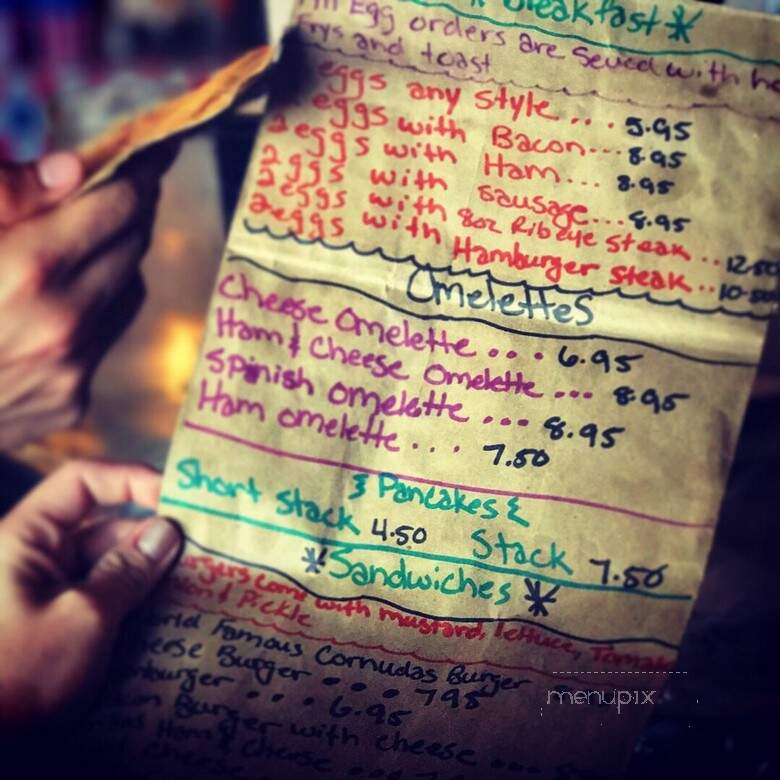 Breakfast
All Egg orders are served with ha
Frys and toast
eggs any style ... 5.95
eggs with Bacon... 8.95
2 eggs with Ham... 8.95
2 eggs with sausage... 8.95
2 eggs with 8oz Ribeye Steak .. 12.50
2 eggs with Hamburger Steak .. 10.50
Omelettes
Cheese Omelette ... 6.95
Ham & Cheese Omelette ... 8.95
Spinish omelette ... 8.95
Ham omelette ... 7.50
Pancakes
Short Stack 4.50 Stack 7.50
Sandwiches
urgers come with mustard, lettuce, Tomat
Pickle
orld Famous Cornudas Burger
heese Burger ... 7.95
mburger ... 6.95
Burger with cheese
Ham & cheese
cheese
menupix